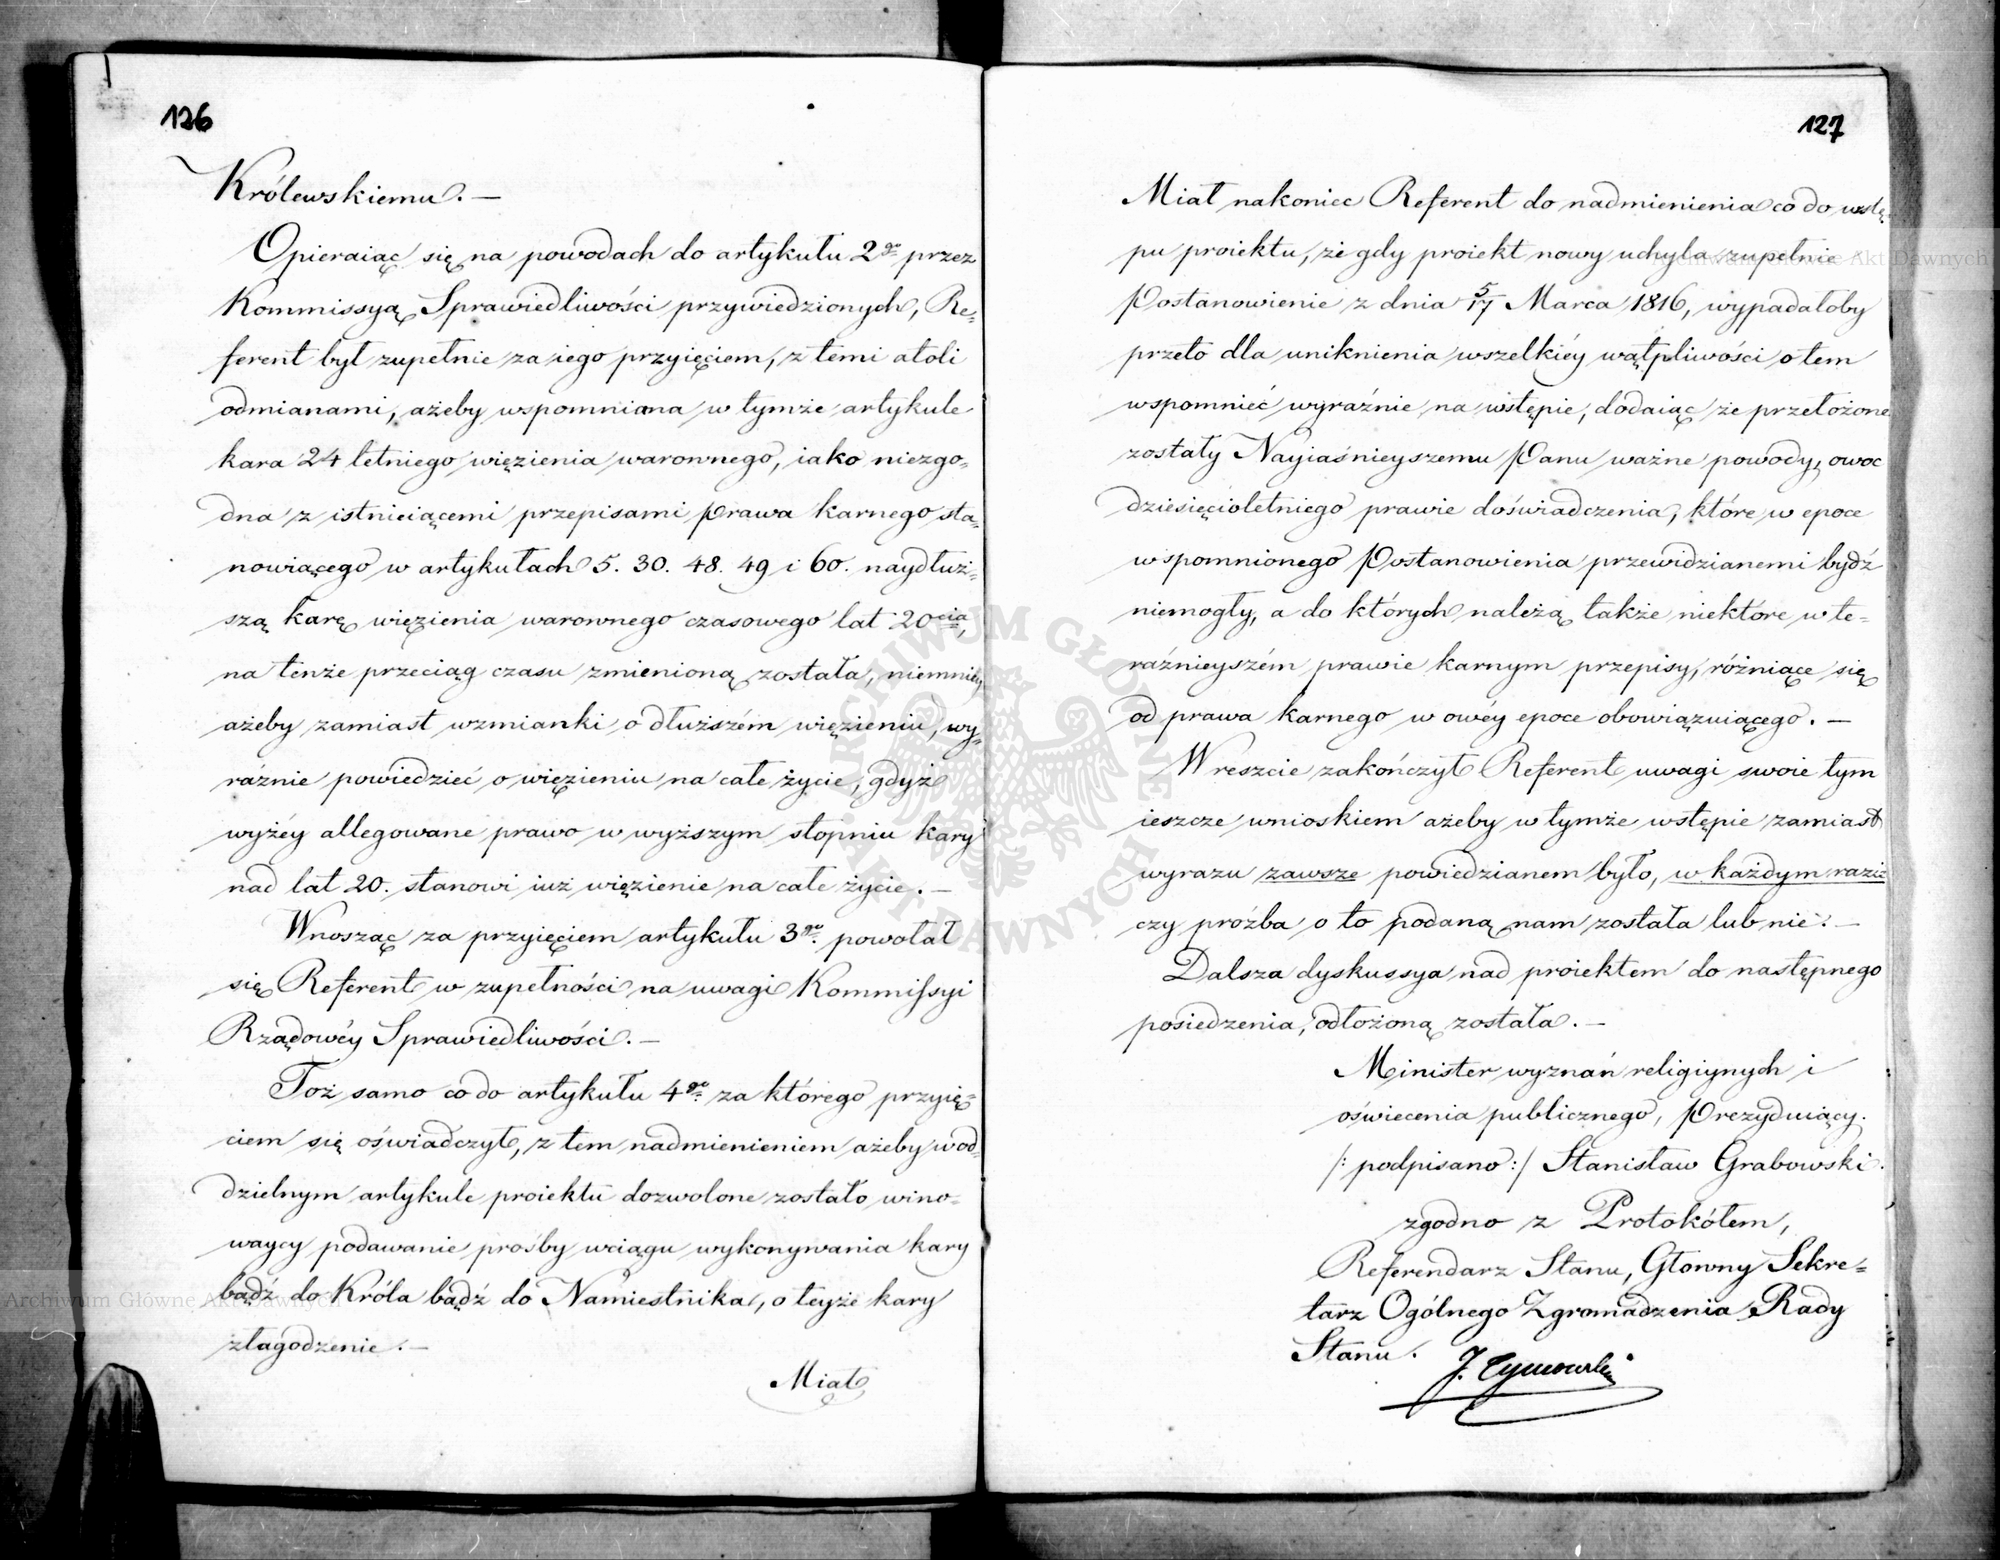 126
Królewskiemu. —
Opieraiąc się na powodach do artykułu 2go przez
Kommissyą Sprawiedliwości przywiedzionych, Re-
ferent był zupełnie za iego przyięciem, z temi atoli
odmianami, ażeby wspomniana w tymże artykule
kara 24 letniego więzienia warownego, iako niezgo-
dna z istnieiącemi przepisami prawa karnego sta-
nowiącego w artykułach 5. 30. 48. 49 i 60. naydłuż-
szą karę więzienia warownego czasowego lat 20cia,
na tenże przeciąg czasu zmienioną została, niemniey
ażeby zamiast wzmianki o dłuższém więzieniu, wy-
raźnie powiedzieć o więzieniu na całe życie, gdyż
wyżéy allegowane prawo w wyższym stopniu kary
nad lat 20. stanowi iuż więzienie na całe życie. —
Wnosząc za przyięciem artykułu 3go. powołał
się Referent w zupełności na uwagi Kommissyi
Rządowéy Sprawiedliwości. —
Toż samo co do artykułu 4go. za którego przyię-
ciem się oświadczył, z tem nadmienieniem ażeby w od-
dzielnym artykule proiektu dozwolone zostało wino-
waycy podawanie prośby wciągu wykonywania kary
bądź do Króla bądź do Namiestnika, o teyże kary
złagodzenie. —
Miał
127
Miał nakoniec Referent do nadmienienia co do wstę-
pu proiektu, że gdy proiekt nowy uchyla zupełnie
Postanowienie z dnia 5/17 Marca 1816, wypadałoby
przeto dla uniknienia wszelkiéy wątpliwości o tem
wspomnieć wyraźnie na wstępie, dodaiąc że przełożone
zostały Nayiaśnieyszemu Panu ważne powody, owoc
dziesięcioletniego prawie doświadczenia, które w epoce
wspomnionego Postanowienia przewidzianemi bydź
niemogły, a do których należą także niektóre w te-
raźnieyszém prawie karnym przepisy, różniące się
od prawa karnego w owéy epoce obowiązuiącego. —
Wreszcie zakończył Referent uwagi swoie tym
ieszcze wnioskiem ażeby w tymże wstępie zamiast
wyrazu zawsze powiedzianem było, w każdym razie
czy prośba o to podaną nam została lub nie. —
Dalsza dyskussya nad proiektem do następnego
posiedzenia, odłożoną została. —
Minister wyznań religiynych i
oświecenia publicznego, Prezyduiący.
/: podpisano :/ Stanisław Grabowski.
zgodno z Protokółem,
Referendarz Stanu, Głowny Sekre-
tarz Ogólnego Zgromadzenia Rady
Stanu.
J. Tymowski
ARCHIWUM GŁÓWNE AKT DAWNYCH
Archiwum Główne Akt Dawnych
Archiwum Główne Akt Dawnych